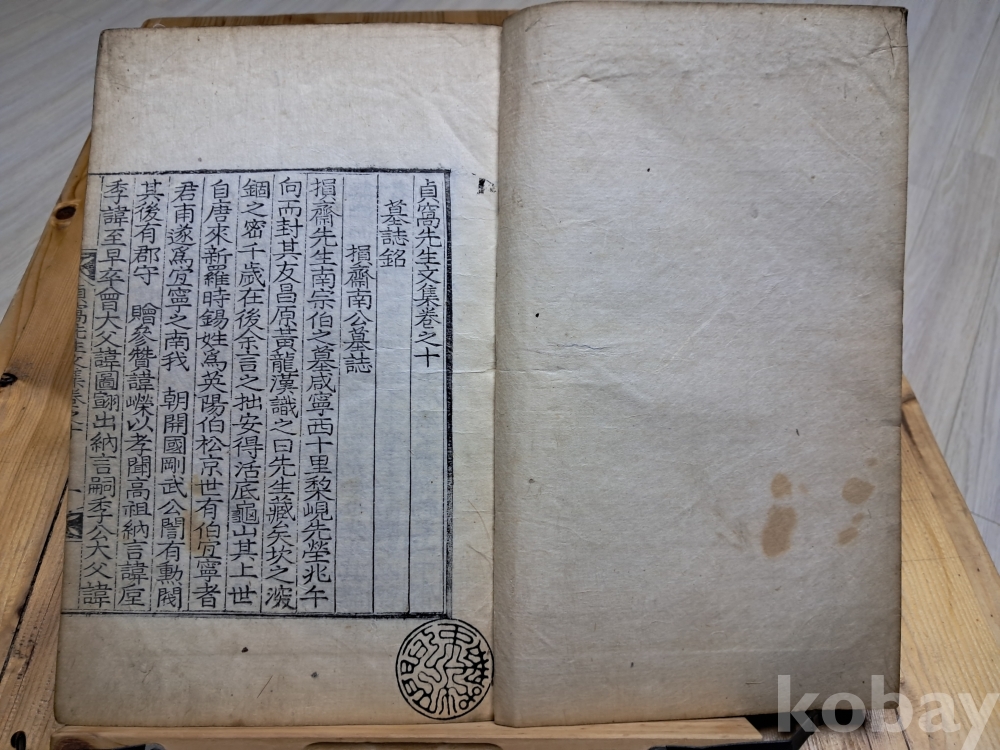 貞窩先生文集卷之十
墓誌銘
損齋南公墓誌
損齋先生南宗伯之墓咸寧西十里黎峴先塋兆午
向而封其友昌原黃龍漢識之曰先生藏矣坎之深
錮之密千歲在後余言之拙安得活底龜山其上世
自唐來新羅時錫姓爲英陽伯松京世有伯宜寧者
君甫遂爲宜寧之南我 朝開國剛武公誾有勳閥
其後有郡守 贈參贊諱嶸以孝聞高祖納言諱垕
季諱至早卒曾大父諱圖翧出納言嗣季公大父諱
貞窩先生文集卷之十
一
kobay